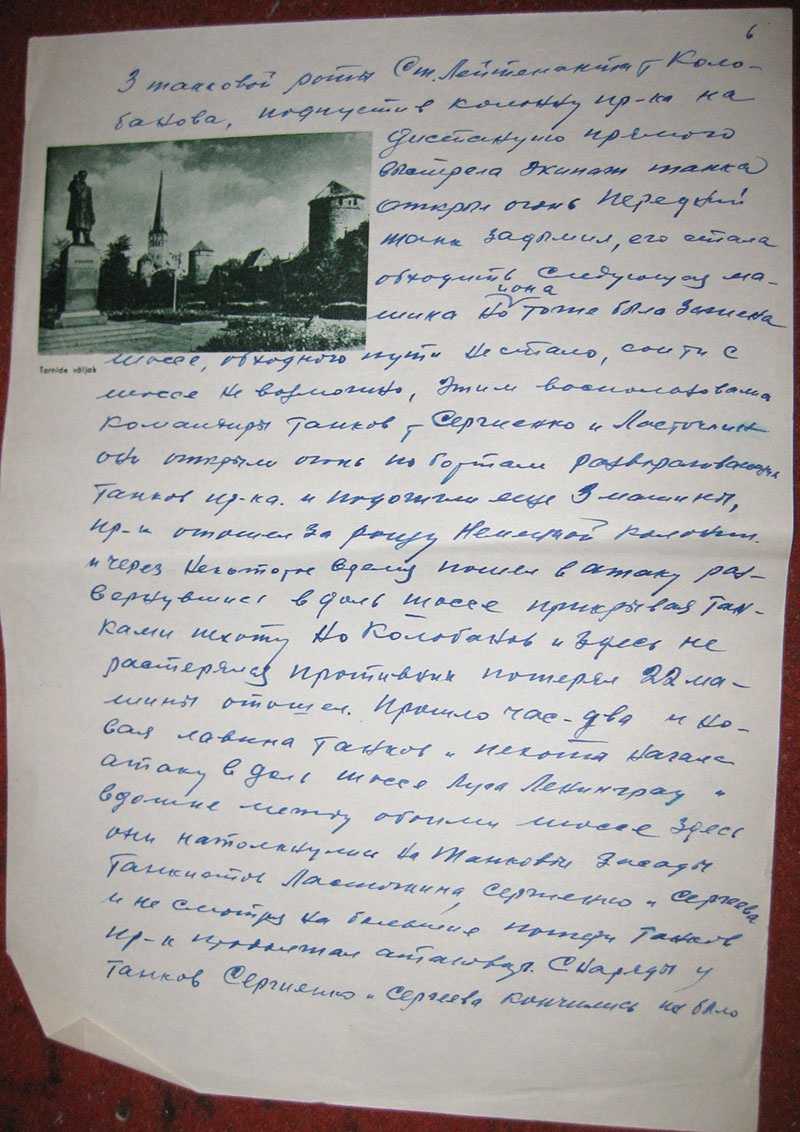 6
3 танковой роты Ст. Лейтенанта т Коло-
банова, подпустив колонну пр-ка на
дистанцию прямого
выстрела экипаж танка
открыл огонь Передний
танк задымил, его стала
обходить следующая ма-
шина но она тоже была зажжена
Tornide väljak
шоссе, обходного пути не стало, сойти с
шоссе не возможно, этим воспользовались
командиры танков т Сергиенко и Ласточкин
они открыли огонь по бортам разворачивающихся
танков пр-ка. и подожгли еще 3 машины,
пр-к отошел за рощу Немецкой колонии.
и через некоторое время пошел в атаку раз-
вернувшись в доль шоссе прикрывая тан-
ками пехоту Но Колобанов и здесь не
растерялся противник потерял 22 ма-
шины отошел. Прошло час-два и но-
вая лавина танков и пехота начала
атаку в доль шоссе Луга Ленинград и
между обоими шоссе здесь
они натолкнулись на танковые засады
танкистов Ласточкина, Сергиенко и Сергеева
и не смотря на большие потери танков
пр-к продолжал атаковать. Снаряды у
танков Сергиенко и Сергеева кончились их было